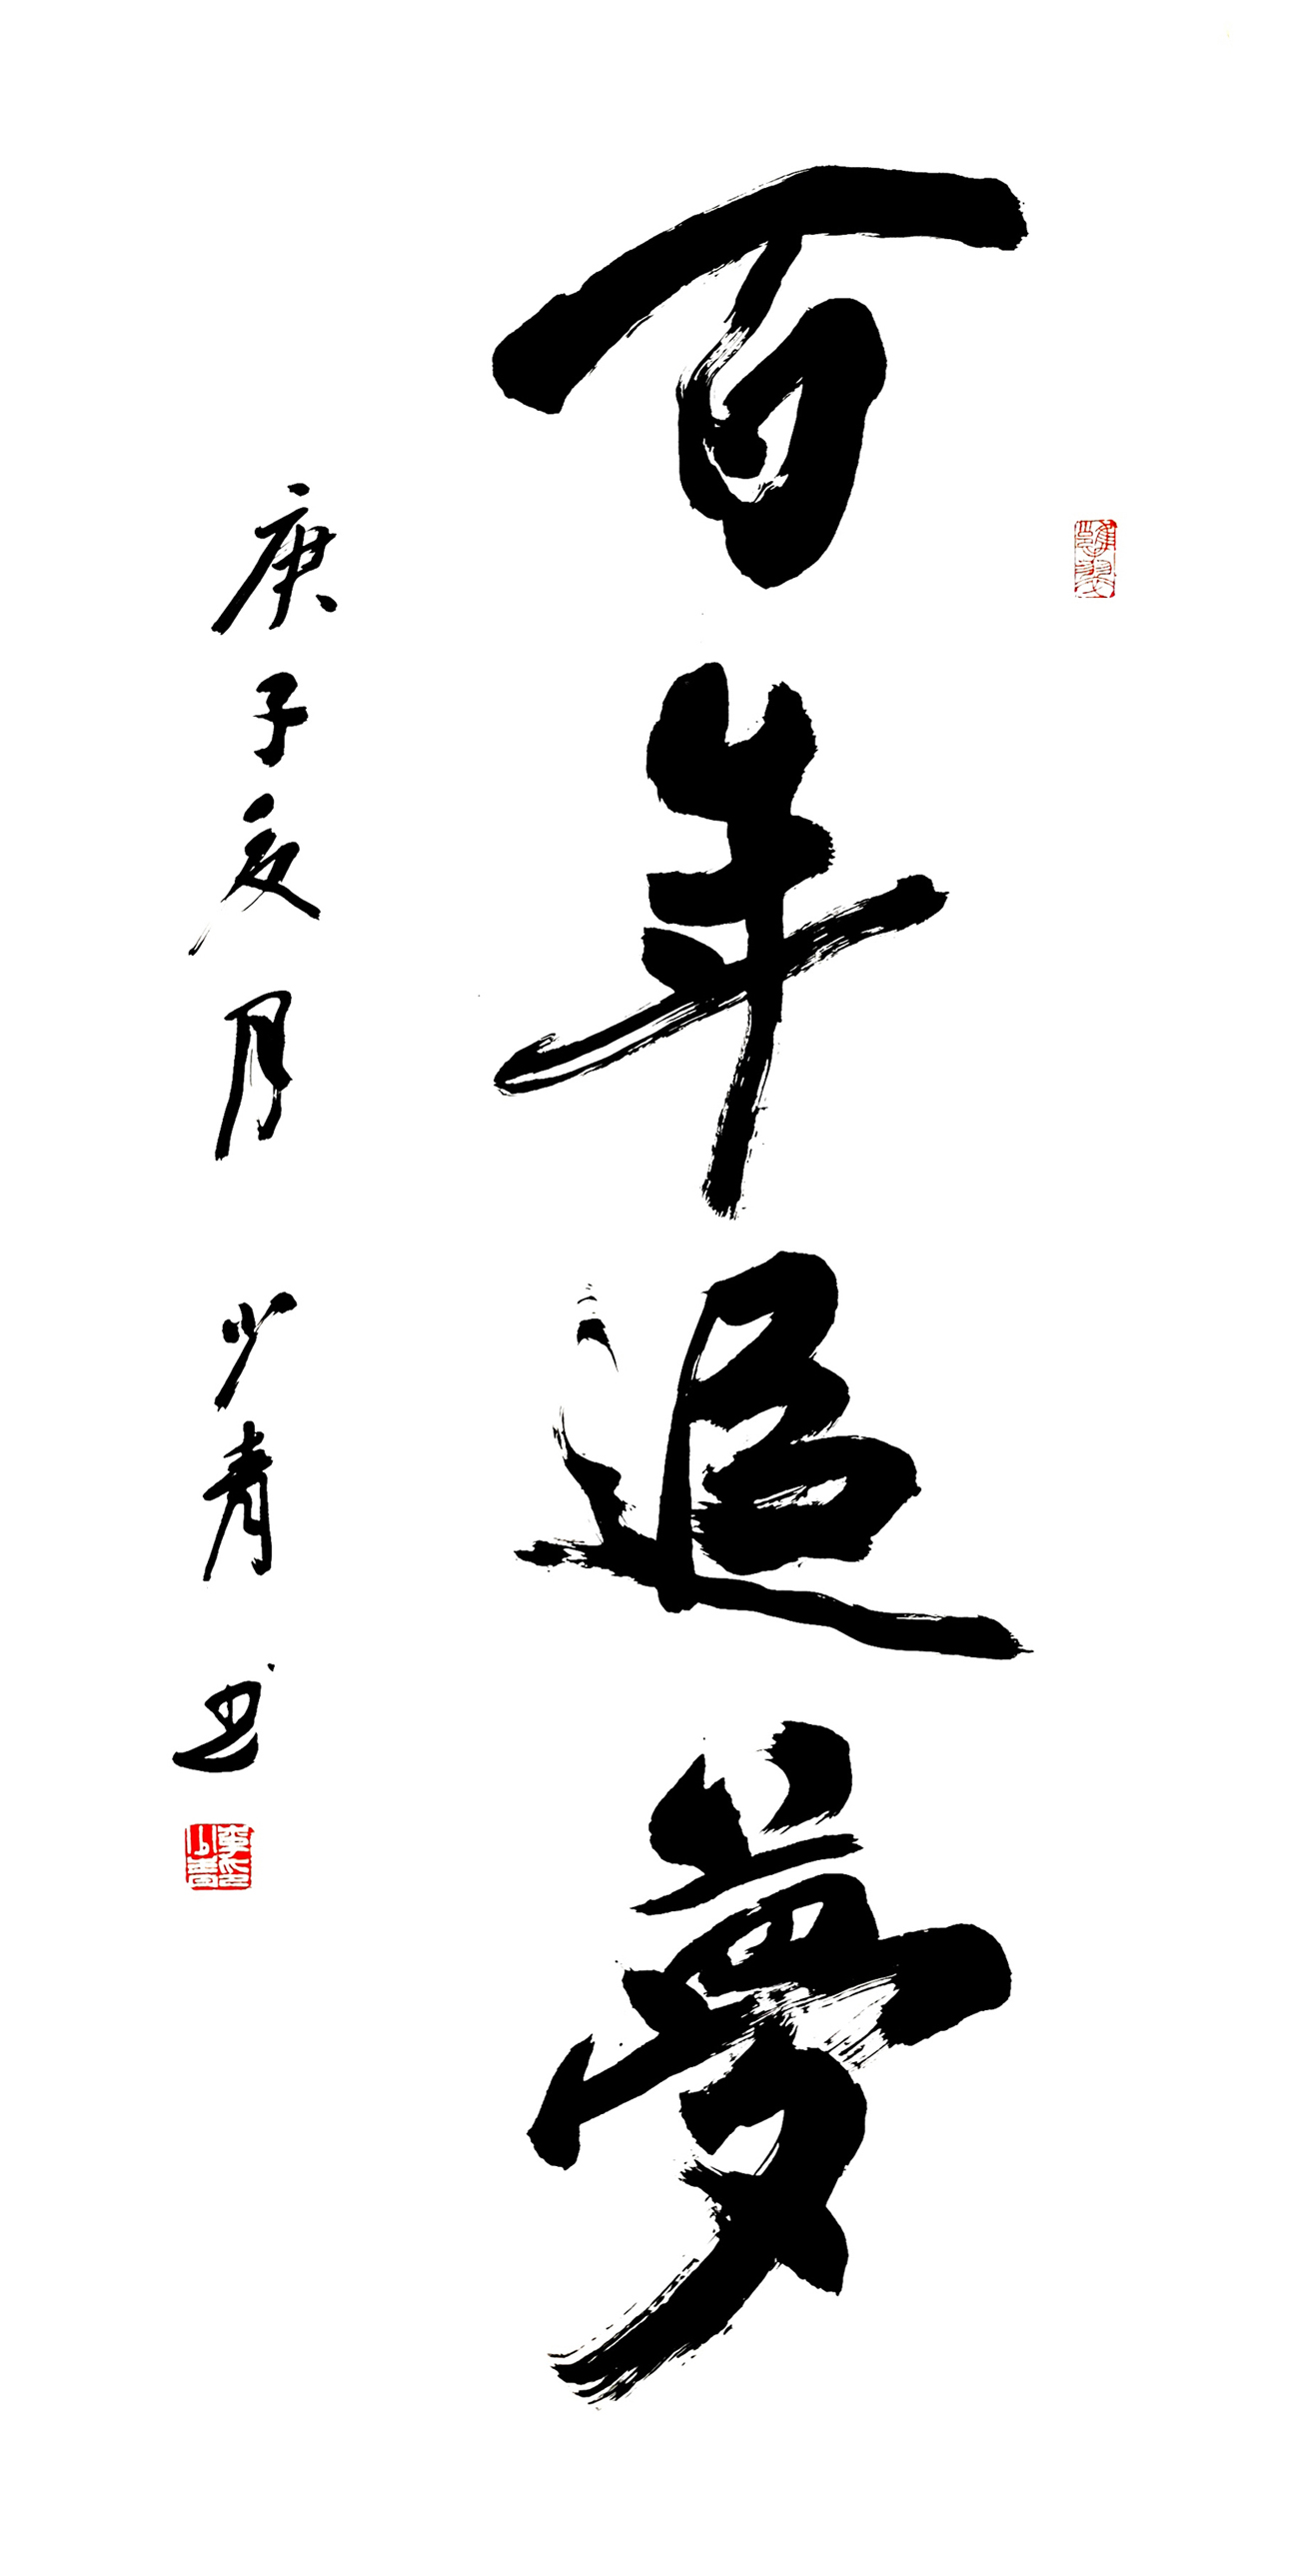 百年追夢
庚子夏月 少青书